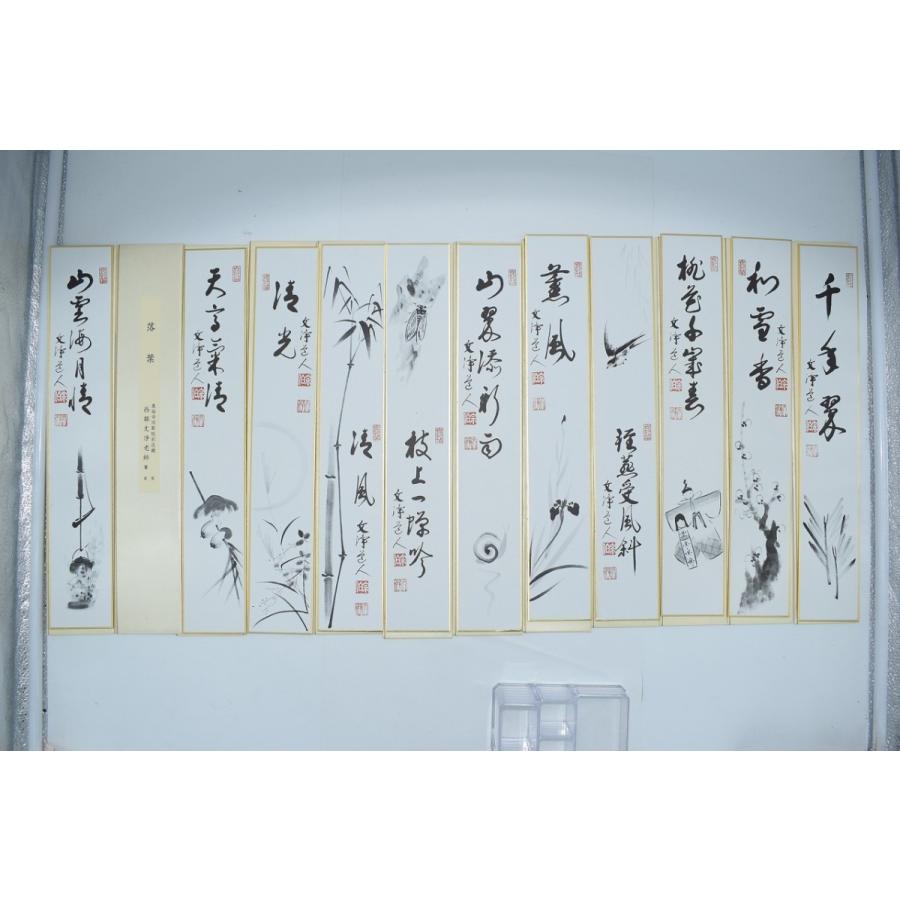 千年翠
文浄道人
和雪香
文浄道人
桃花千歳春
文浄道人
軽燕受風斜
文浄道人
薫風
文浄道人
山翠添新雨
文浄道人
枝上一蝉吟
文浄道人
清風
文浄道人
清光
文浄道人
天高気清
文浄道人
落葉
西部文浄老師
山雲海月情
文浄道人